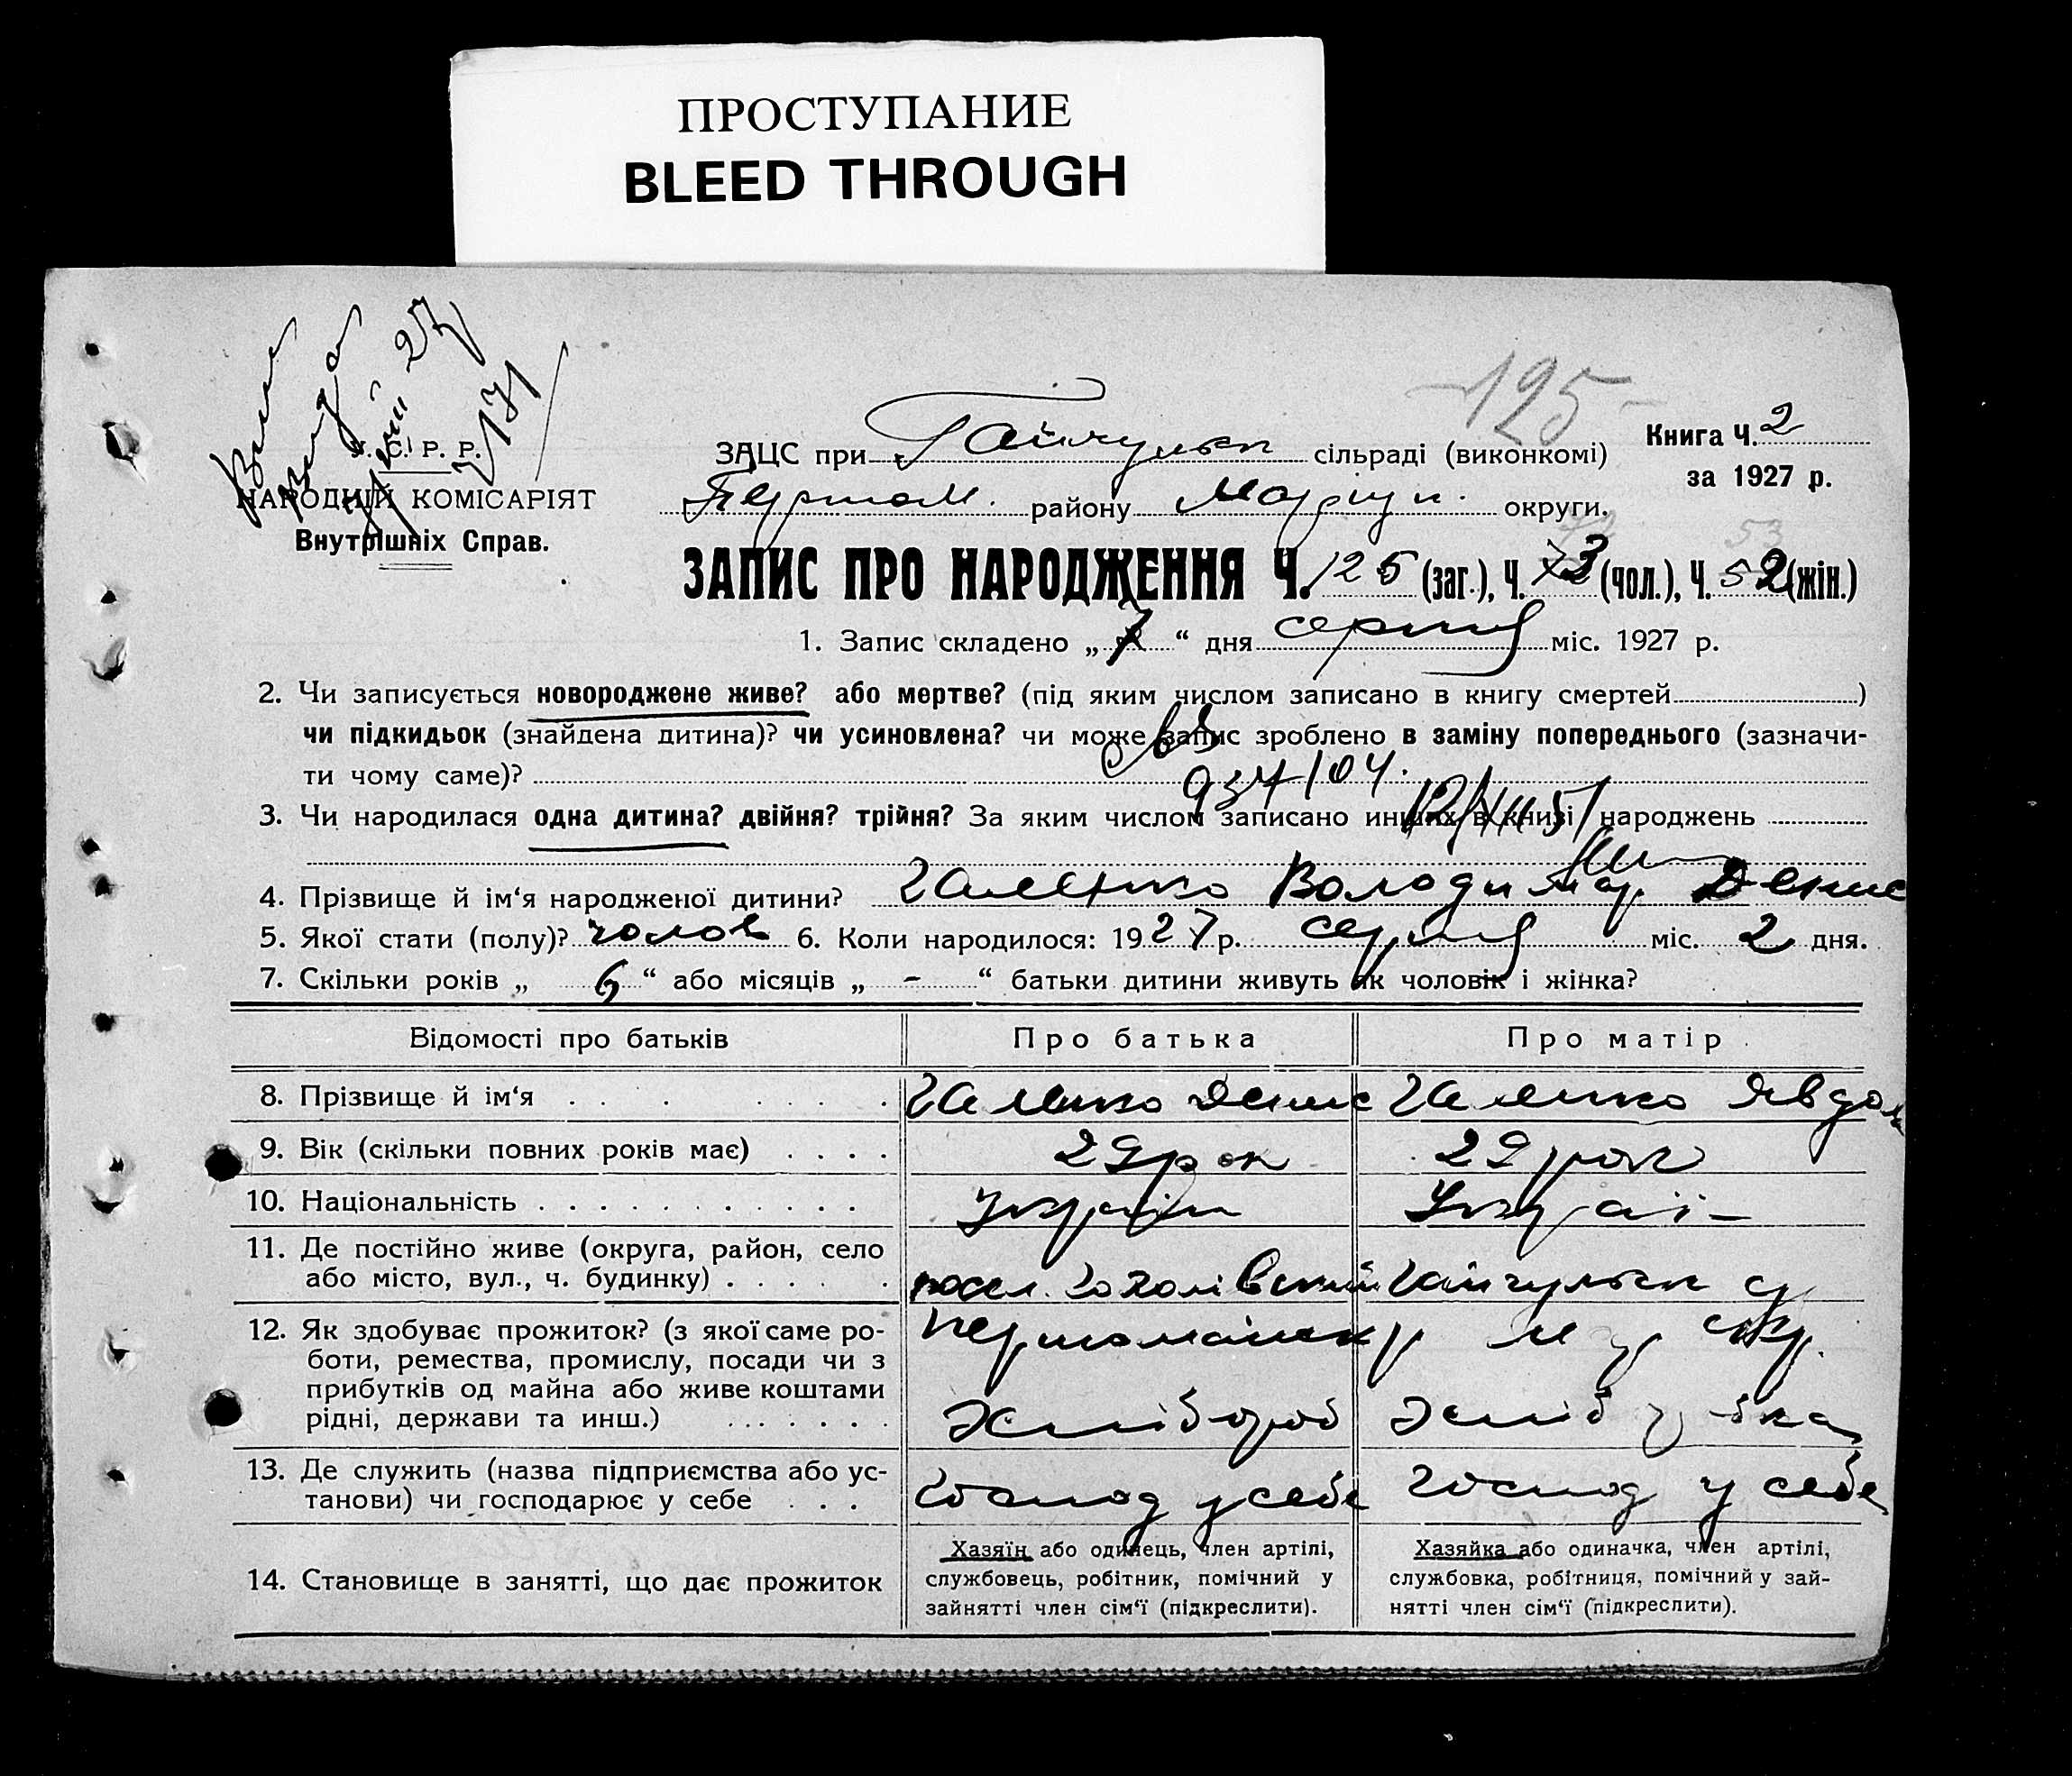 ПРОСТУПАНИЕ
BLEED THROUGH
-125-
У. С. Р. Р.
НАРОДНІЙ КОМІСАРІЯТ
Внутрішніх Справ.
ЗАЦС при Гайчульск сільраді (виконкомі)
Книга Ч. 2
за 1927 р.
Першом. району Маріуп. округи.
72 53
ЗАПИС ПРО НАРОДЖЕННЯ Ч. 125 (заг.), Ч. 73 (чол.), Ч. 52 (жін.)
1. Запис складено „ 7 “ дня серпня міс. 1927 р.
2. Чи записується новороджене живе? або мертве? (під яким числом записано в книгу смертей )
чи підкидьок (знайдена дитина)? чи усиновлена? чи може запис зроблено в заміну попереднього (зазначи-
ти чому саме)?
937104.
3. Чи народилася одна дитина? двійня? трійня? За яким числом записано инших в книзі народжень
4. Прізвище й ім‘я народженої дитини? Галенко Володимир Денис
5. Якої стати (полу)? чолов 6. Коли народилося: 1927 р. серпня міс. 2 дня.
7. Скільки років „ 6 “ або місяців „ - “ батьки дитини живуть як чоловік і жінка?
Відомості про батьків Про батька Про матір
8. Прізвище й ім‘я Галенко Денис Галенко Явдок
9. Вік (скільки повних років має) 29 рок 29 рок
10. Національність Україн Украї-
11. Де постійно живе (округа, район, село
або місто, вул., ч. будинку) посел. Гайчульск с
12. Як здобуває прожиток? (з якої саме ро-
боти, ремества, промислу, посади чи з
прибутків од майна або живе коштами
рідні, держави та инш.)
Першомайськ р М окр.
Хлібороб Хлібор-бка
13. Де служить (назва підприємства або ус-
танови) чи господарює у себе Господ у себе Господ у себе
14. Становище в занятті, що дає прожиток
Хазяїн або одинець, член артілі,
службовець, робітник, помічний у
зайнятті член сім‘ї (підкреслити).
Хазяйка або одиначка, член артілі,
службовка, робітниця, помічний у зай-
нятті член сім‘ї (підкреслити).